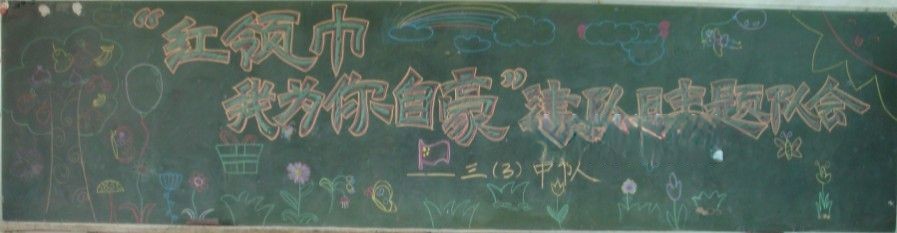 “红领巾
我为你自豪”建队日主题队会
——三（3）中队